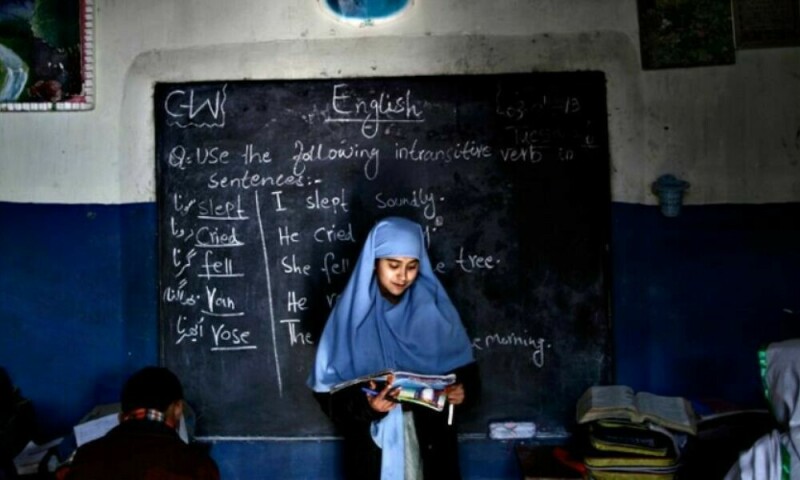 CW
English
Q: Use the following intransitive verb in
sentences:-
سونا slept I slept soundly.
رونا Cried He Cried
گرنا fell She fell tree.
بھاگنا ran He
rose The morning.